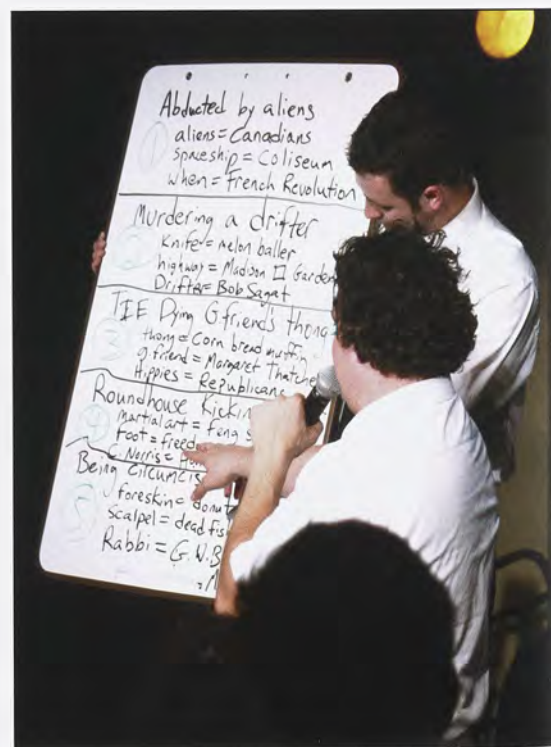 Abducted by aliens
1
aliens = Canadians
spaceship = Coliseum
when = French Revolution
Murdering a drifter
2
Knife = melon baller
highway = Madison □ Garden
Drifter = Bob Saget
TIE Dying Gfriend's thong
3
thong = Corn bread muffin
g.friend = Margaret Thatche
Hippies = Republicans
Roundhouse Kickin
4
Martial art = Feng
Foot = freed
C. Norris =
Being Circumcis
5
foreskin = donut
scalpel = dead fis
Rabbi = G.W.B